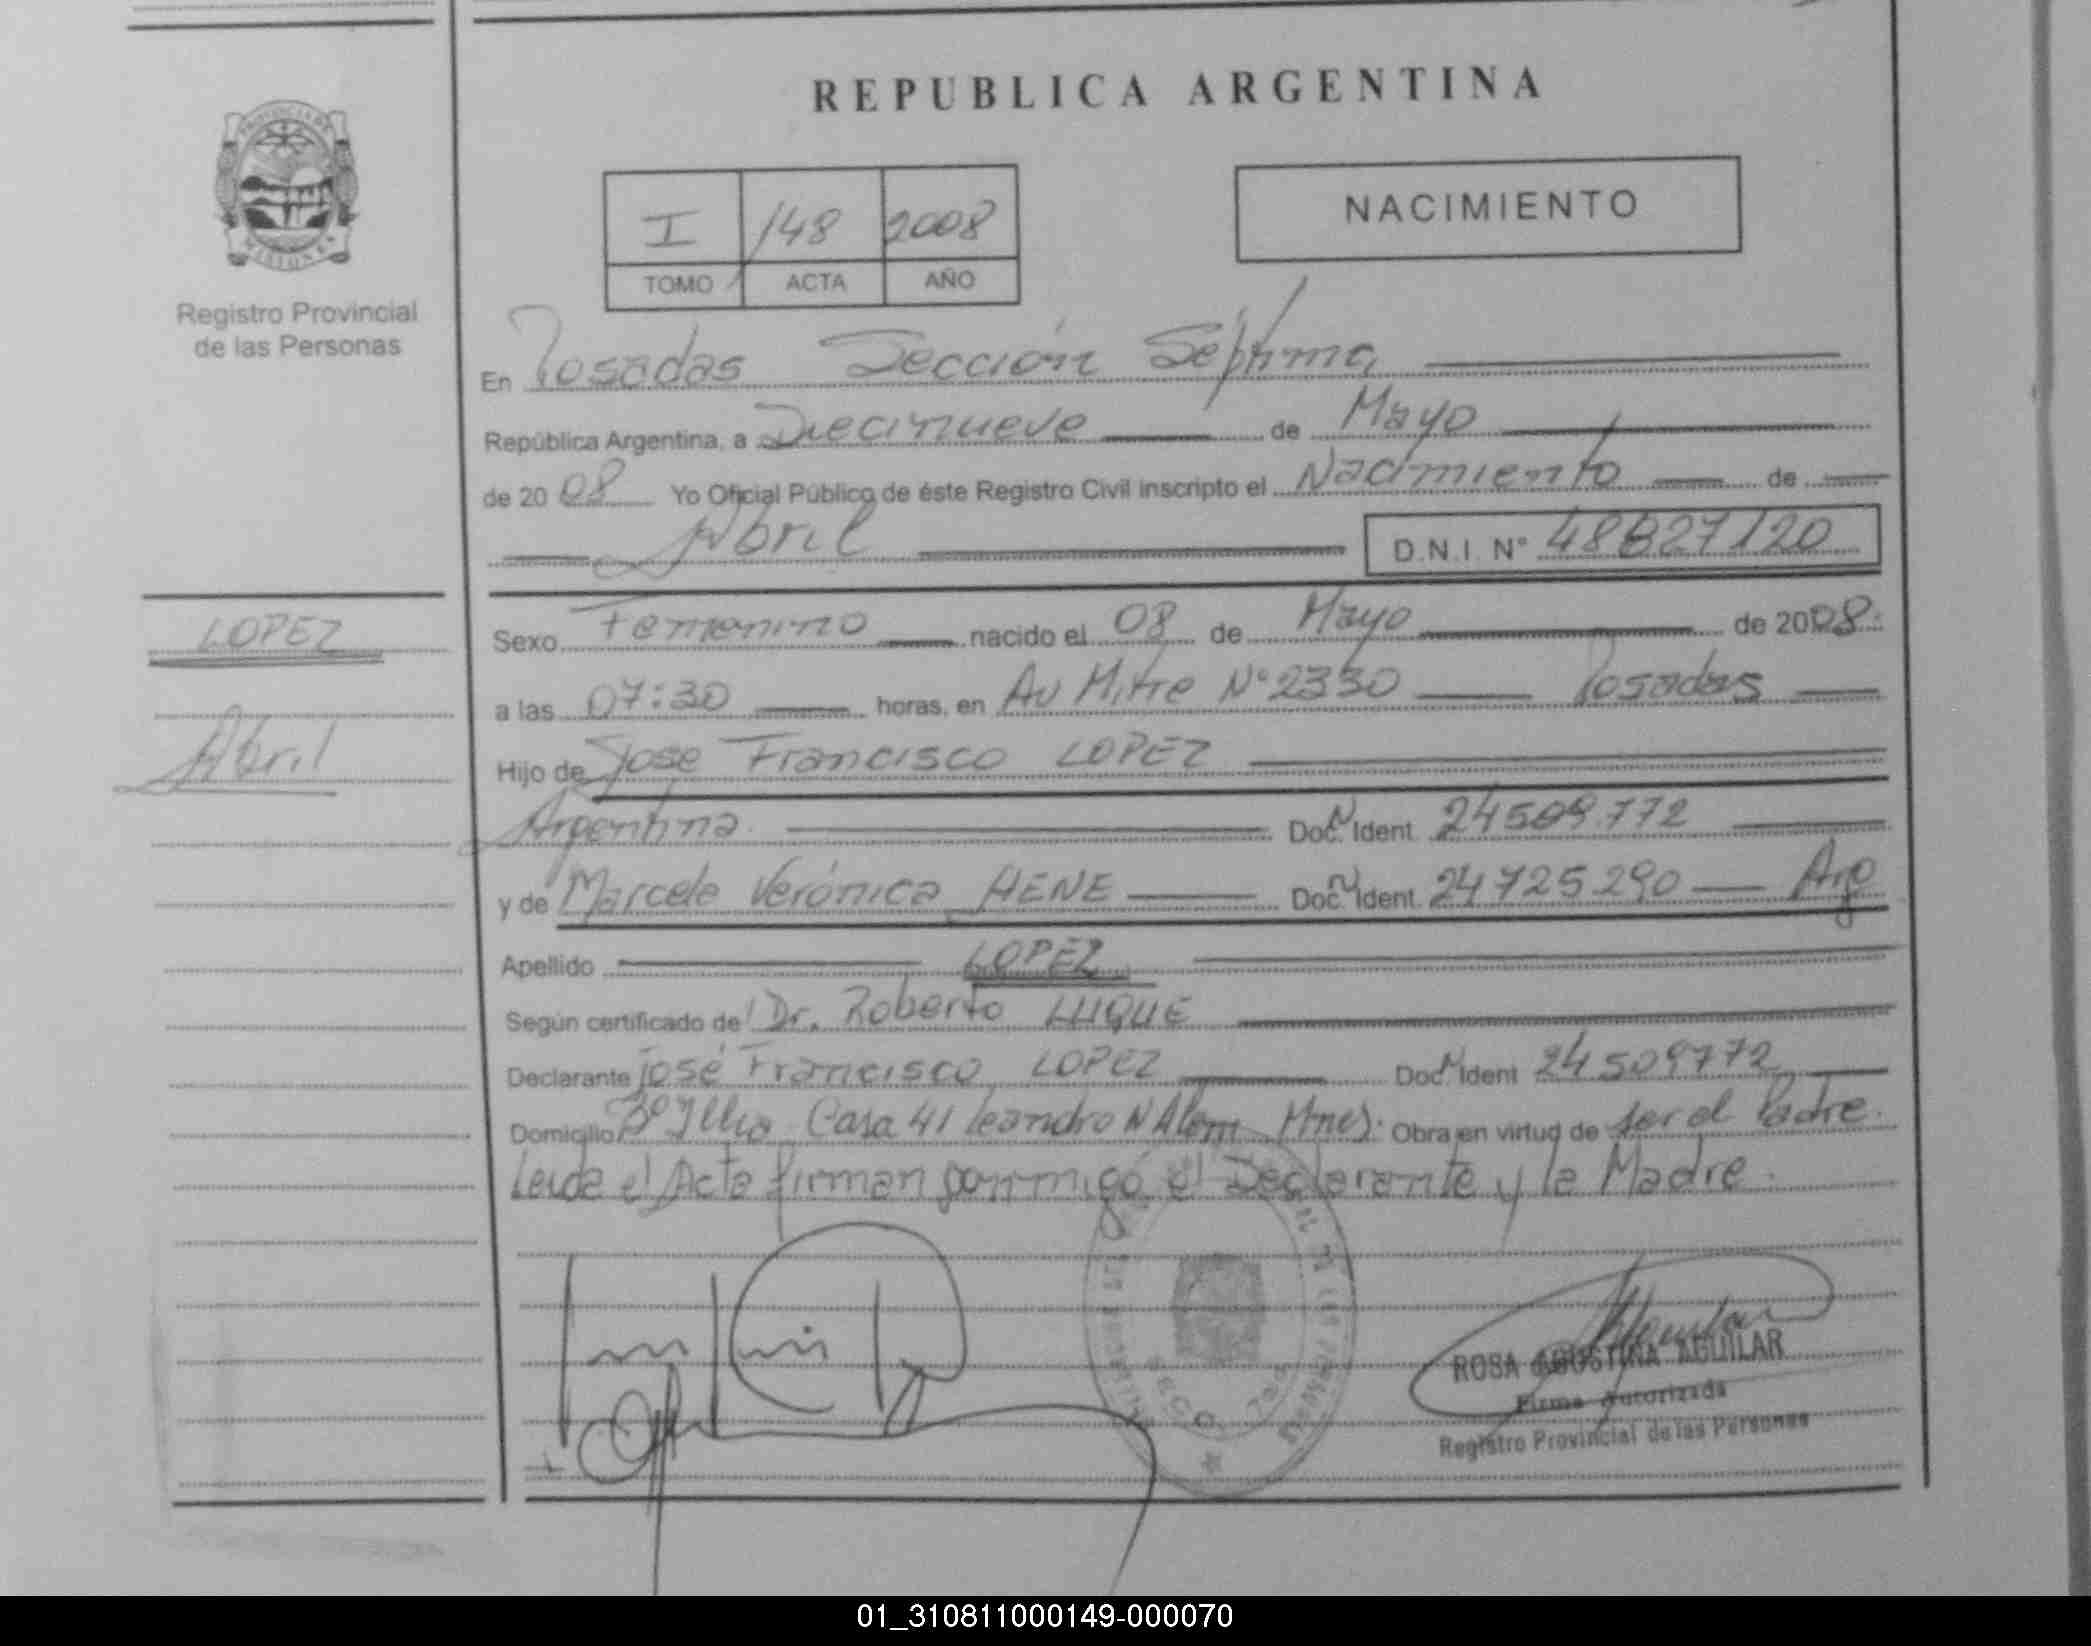 REPUBLICA ARGENTINA
PROVINCIA DE MISIONES
Registro Provincial
de las Personas
I 148 2008
TOMO ACTA AÑO
NACIMIENTO
En Posadas Sección Séptima
República Argentina, a Diecinueve de Mayo
de 2008 Yo Oficial Público de éste Registro Civil inscripto el Nacimiento de
Abril D.N.I. N° 48827120
LOPEZ
Abril
Sexo Femenino nacido el 08 de Mayo de 2008.
a las 07:30 horas, en Av Mitre N° 2330 Posadas
Hijo de Jose Francisco LOPEZ
Argentina. Doc. N Ident. 24509.772
y de Marcela Verónica HENE Doc. N Ident. 24725290 Arg
Apellido LOPEZ
Según certificado de Dr. Roberto LUQUE
Declarante José Francisco LOPEZ Doc. N Ident 24509772
Domicilio Bº Casa 41 Leandro N Alem Mnes. Obra en virtud de ser el Padre.
Leida el Acta firman conmigo el Declarante y la Madre.
ROSA AGUSTINA AGUILAR
Firma Autorizada
Registro Provincial de las Personas
01_310811000149-000070